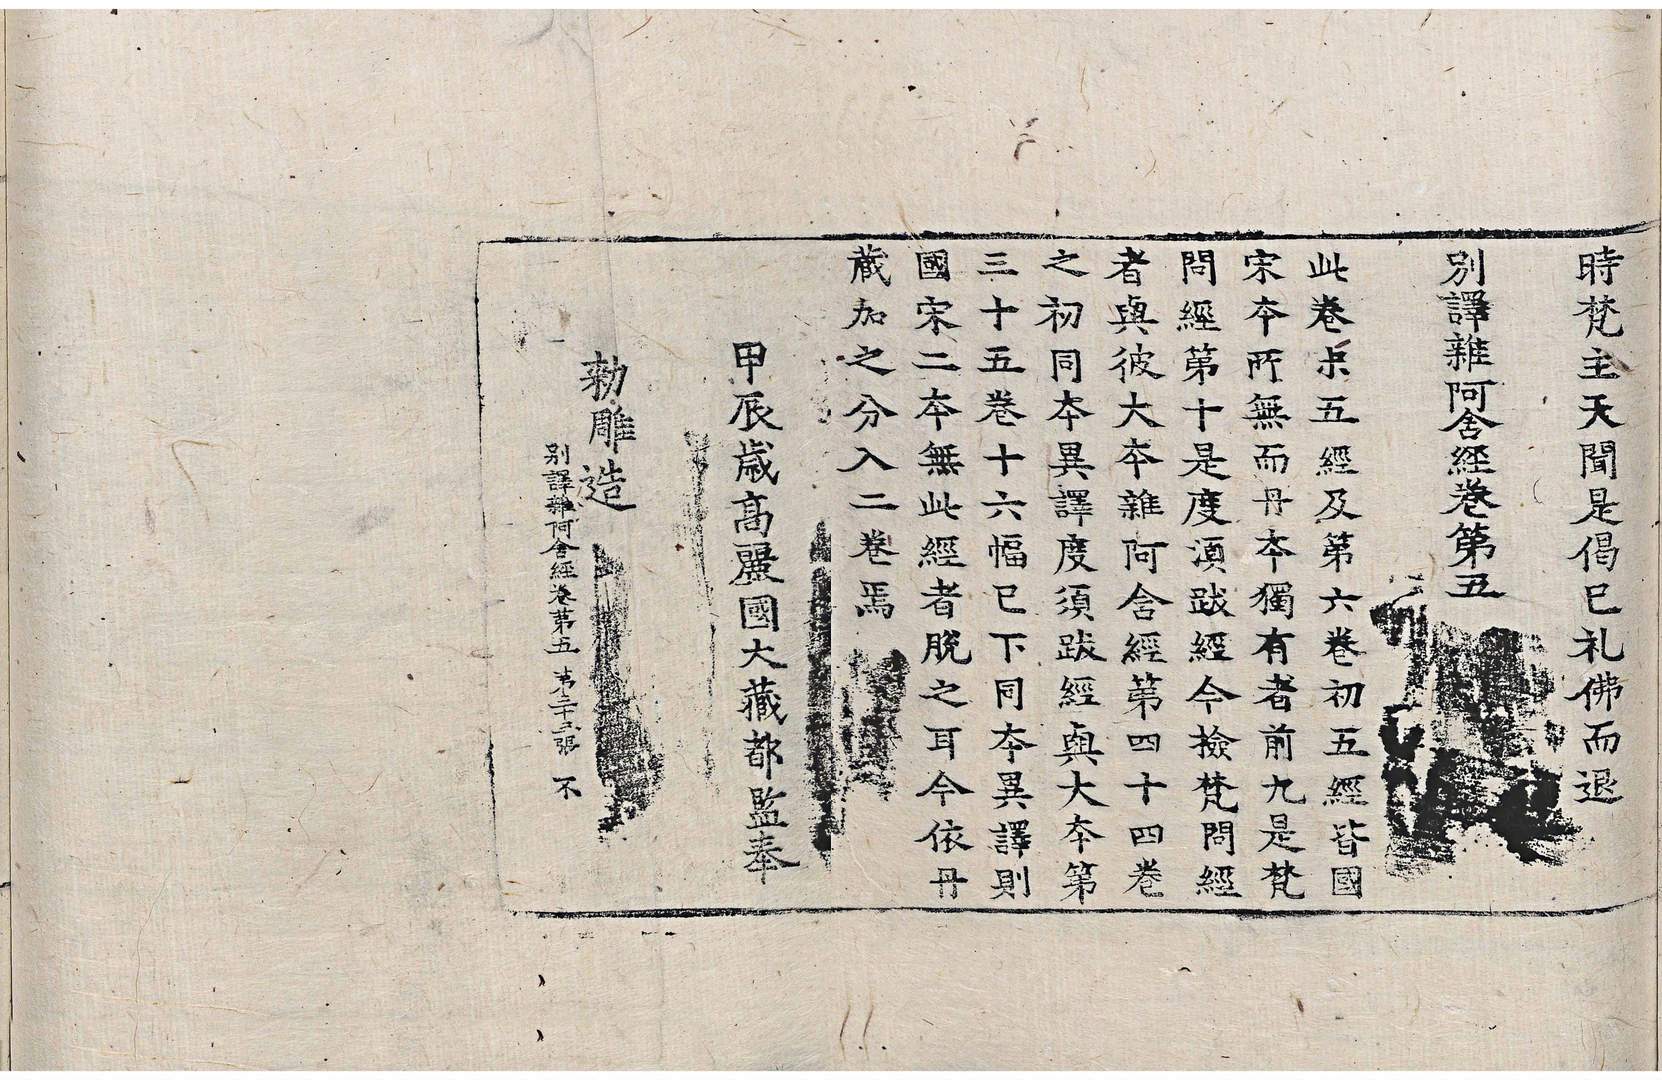 時梵主天聞是偈已礼佛而退
別譯雜阿含經卷第五
此卷末五經及第六卷初五經皆國
宋本所無而丹本獨有者前九是梵
問經第十是度須跋經今撿梵問經
者與彼大本雜阿含經第四十四卷
之初同本異譯度須跋經與大本第
三十五卷十六幅已下同本異譯則
國宋二本無此經者脫之耳今依丹
藏加之分入二卷焉
甲辰歲高麗國大藏都監奉
勅雕造
別譯雜阿含經卷第五 第二十三張 不